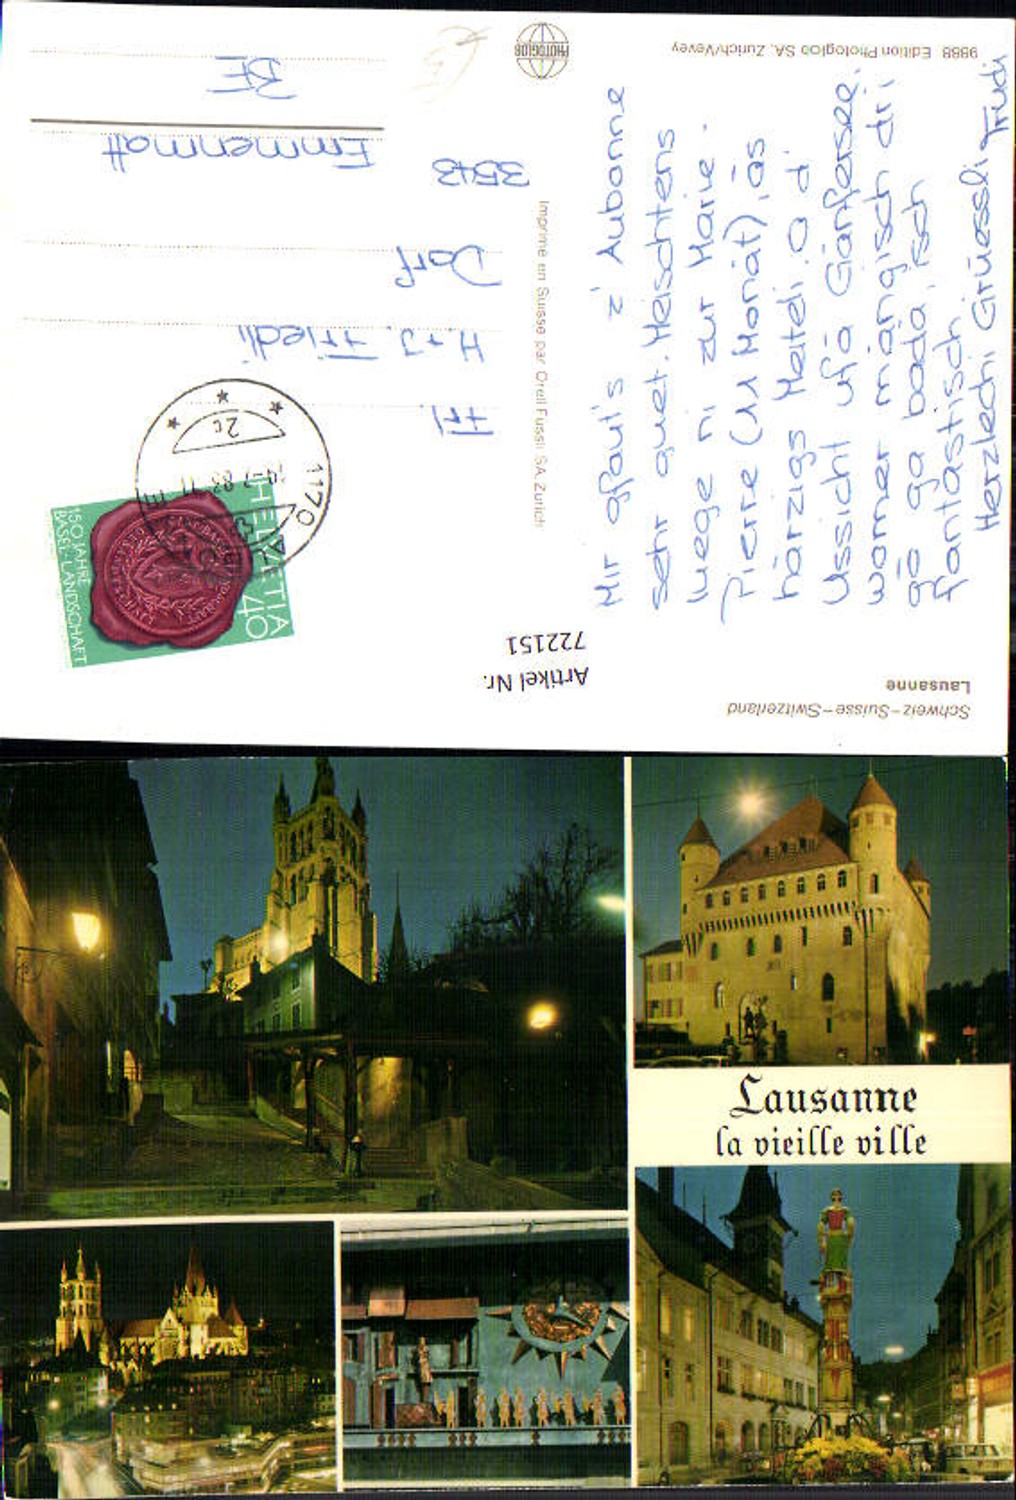 Schweiz-Suisse-Switzerland
Lausanne
Artikel Nr.
722151
Mir gfaut's z' Aubonne
sehr guet. Meischtens
luege ni zur Marie.
Pierre (11 Monät), äs
härzigs Meitdi. O d'
Ussicht ufä Gänfersee,
womer mängisch dri
gö ga badä, isch
fantastisch.
Herzlechi Grüessli Trudi
HELVETIA
40
150 JAHRE
BASEL-LANDSCHAFT
1170
2c
Frl.
H.+J. Friedli
Dorf
3543
Emmenmatt
BE
Imprimé en Suisse par Orell Füssli SA, Zurich
PHOTOGLOB
9888 Edition Photoglob SA, Zurich/Vevey
Lausanne
la vieille ville